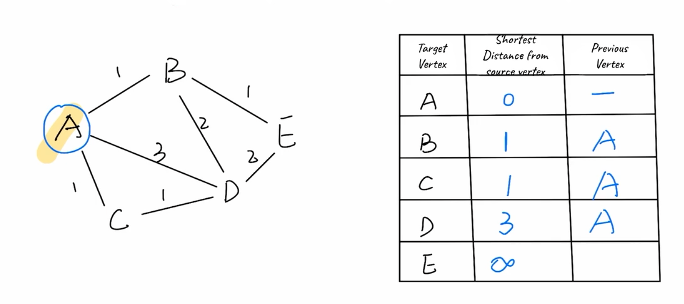 B
1
1
A
2
E
3
2
1
1
D
C
Target Vertex
Shortest Distance from source vertex
Previous Vertex
A 0 —
B 1 A
C 1 A
D 3 A
E ∞